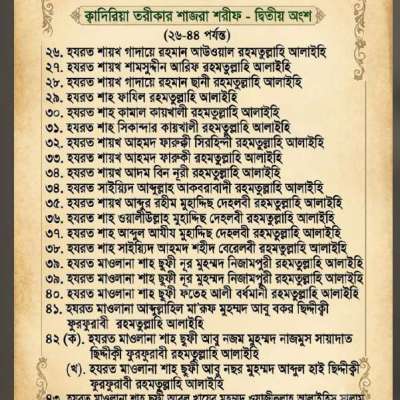 ক্বাদিরিয়া তরীকার শাজরা শরীফ - দ্বিতীয় অংশ
(২৬-৪৪ পর্যন্ত)
২৬. হযরত শায়খ গাদায়ে রহমান আউওয়াল রহমতুল্লাহি আলাইহি
২৭. হযরত শায়খ শামসুদ্দীন আরিফ রহমতুল্লাহি আলাইহি
২৮. হযরত শায়খ গাদায়ে রহমান ছানী রহমতুল্লাহি আলাইহি
২৯. হযরত শাহ ফাযিল রহমতুল্লাহি আলাইহি
৩০. হযরত শাহ কামাল কায়খালী রহমতুল্লাহি আলাইহি
৩১. হযরত শাহ সিকান্দার কায়খালী রহমতুল্লাহি আলাইহি
৩২. হযরত শায়খ আহমদ ফারুক্বী সিরহিন্দী রহমতুল্লাহি আলাইহি
৩৩. হযরত শায়খ আহমদ ফারুকী রহমতুল্লাহি আলাইহি
৩৪. হযরত শায়খ আদম বিন নূরী রহমতুল্লাহি আলাইহি
৩৪. হযরত সাইয়্যিদ আব্দুল্লাহ আকবরাবাদী রহমতুল্লাহি আলাইহি
৩৫. হযরত শায়খ আব্দুর রহীম মুহাদ্দিছ দেহলবী রহমতুল্লাহি আলাইহি
৩৬. হযরত শাহ ওয়ালীউল্লাহ মুহাদ্দিছ দেহলবী রহমতুল্লাহি আলাইহি
৩৭. হযরত শাহ আব্দুল আযীয মুহাদ্দিছ দেহলবী রহমতুল্লাহি আলাইহি
৩৮. হযরত শাহ সাইয়্যিদ আহমদ শহীদ বেরেলবী রহমতুল্লাহি আলাইহি
৩৯. হযরত মাওলানা শাহ ছুফী নূর মুহম্মদ নিজামপুরী রহমতুল্লাহি আলাইহি
৩৯. হযরত মাওলানা শাহ ছুফী নূর মুহম্মদ নিজামপুরী রহমতুল্লাহি আলাইহি
৪০. হযরত মাওলানা শাহ ছুফী ফতেহ আলী বর্ধমানী রহমতুল্লাহি আলাইহি
৪১. হযরত মাওলানা আব্দুল্লাহিল মা'রূফ মুহম্মদ আবু বকর ছিদ্দীক্বী
ফুরফুরাবী রহমতুল্লাহি আলাইহি
৪২ (ক). হযরত মাওলানা শাহ ছুফী আবু নজম মুহম্মদ নাজমুস সায়াদাত
ছিদ্দীক্বী ফুরফুরাবী রহমতুল্লাহি আলাইহি
(খ). হযরত মাওলানা শাহ ছুফী আবু নছর মুহম্মদ আব্দুল হাই ছিদ্দীক্বী
ফুরফুরাবী রহমতুল্লাহি আলাইহি
৪৩. হযরত মাওলানা শাহ ছুফী আবুল খায়ের মুহম্মদ ওয়াজীহুল্লাহ আলাইহিস সালাম